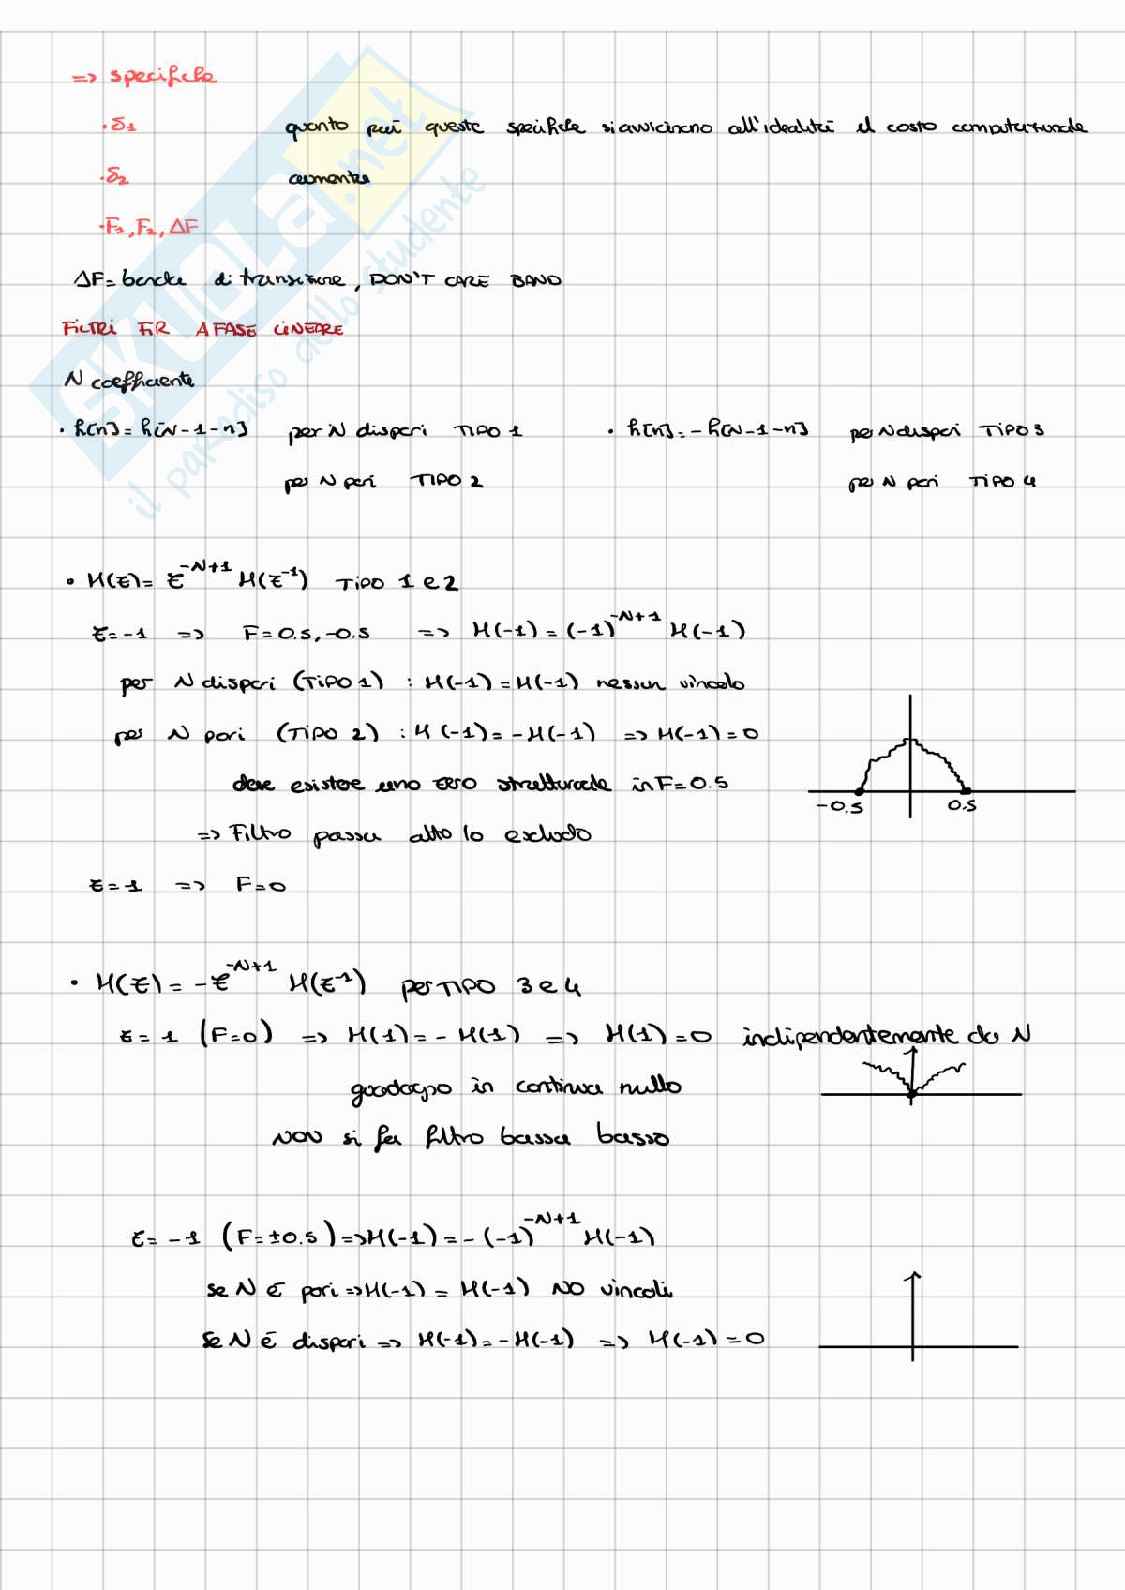 => specifiche
· δ1 quanto più queste specifiche si avvicinano all'idealità il costo computazionale
· δ2 aumenta
· F1, F2, ΔF
ΔF = banda di transizione, DON'T CARE BAND
FILTRI FIR A FASE LINEARE
N coefficiente
· h[n] = h[N-1-n] per N dispari TIPO 1 · h[n] = -h[N-1-n] per N dispari TIPO 3
per N pari TIPO 2 per N pari TIPO 4
· H(z) = z^{-N+1} H(z^{-1}) TIPO 1 e 2
z = -1 => F = 0.5, -0.5 => H(-1) = (-1)^{-N+1} H(-1)
per N dispari (TIPO 1) : H(-1) = H(-1) nessun vincolo
per N pari (TIPO 2) : H(-1) = -H(-1) => H(-1) = 0
deve esistere uno zero strutturale in F = 0.5
-0.5 0.5
=> Filtro passa alto lo escludo
z = 1 => F = 0
· H(z) = -z^{-N+1} H(z^{-1}) per TIPO 3 e 4
z = 1 (F=0) => H(1) = -H(1) => H(1) = 0 indipendentemente da N
guadagno in continua nullo
NON si fa filtro bassa basso
z = -1 (F = ±0.5) => H(-1) = -(-1)^{-N+1} H(-1)
se N è pari => H(-1) = H(-1) NO vincoli
se N è dispari => H(-1) = -H(-1) => H(-1) = 0
SKUOLA.net
il paradiso dello studente